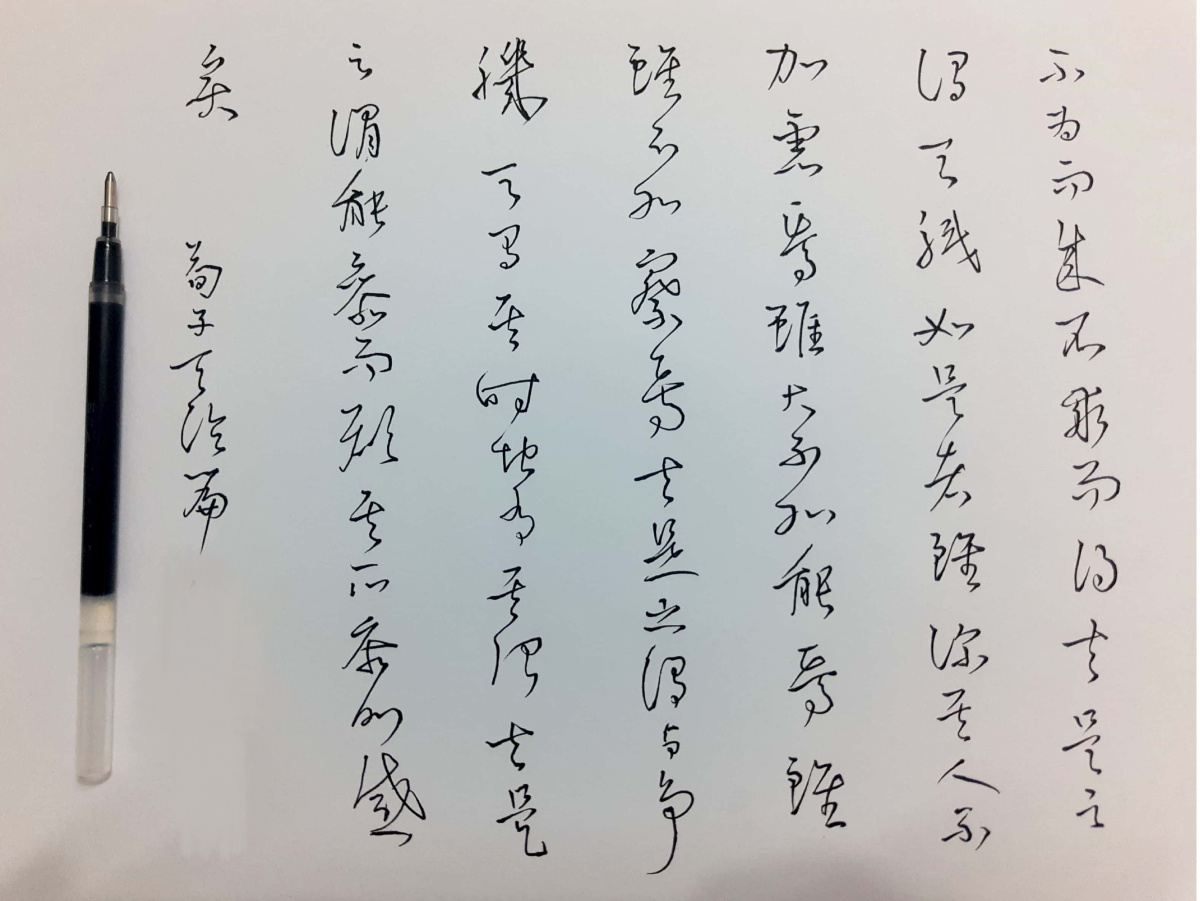 不為而成不求而得夫是之
謂天職如是者雖深其人不
加慮焉雖大不加能焉雖
不加察焉夫是之謂與爭
職天有其时地有其夫是
之謂能參而願其所參則惑
矣 荀子天論篇